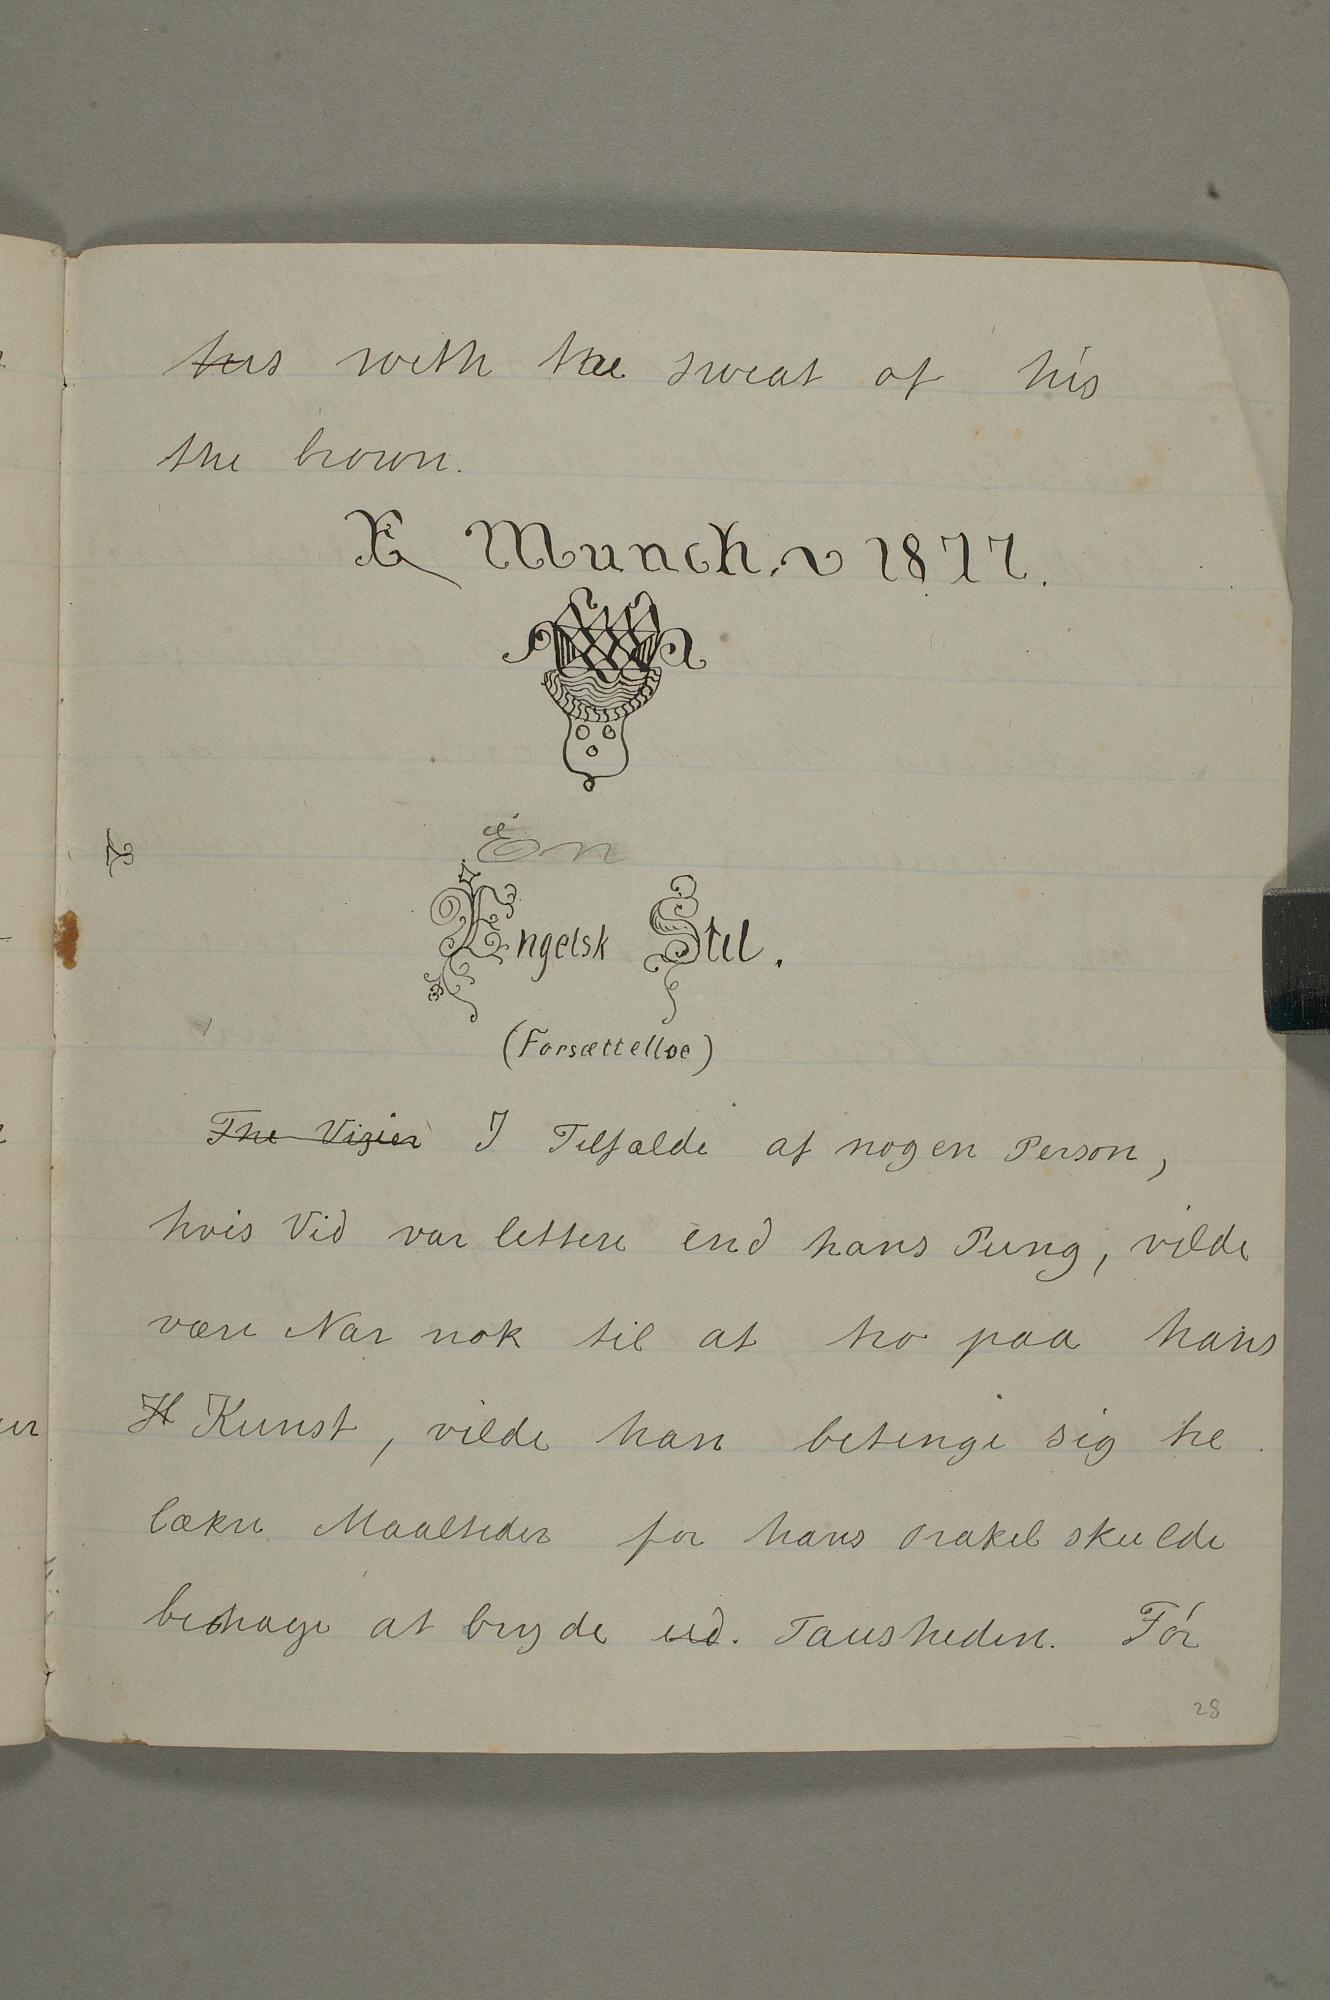 his with the sweat of his
the brown.
E Munch. v 1877.
En
Engelsk Stil.
(Forsættelse)
The Vizier I Tilfælde af nogen Person,
hvis Vid var lettere end hans Pung, vilde
være Nar nok til at tro paa hans
H Kunst, vilde han betinge sig tre
lækre Maaltider før hans Orakel skulde
behage at bryde ud. Tausheden. Før
28